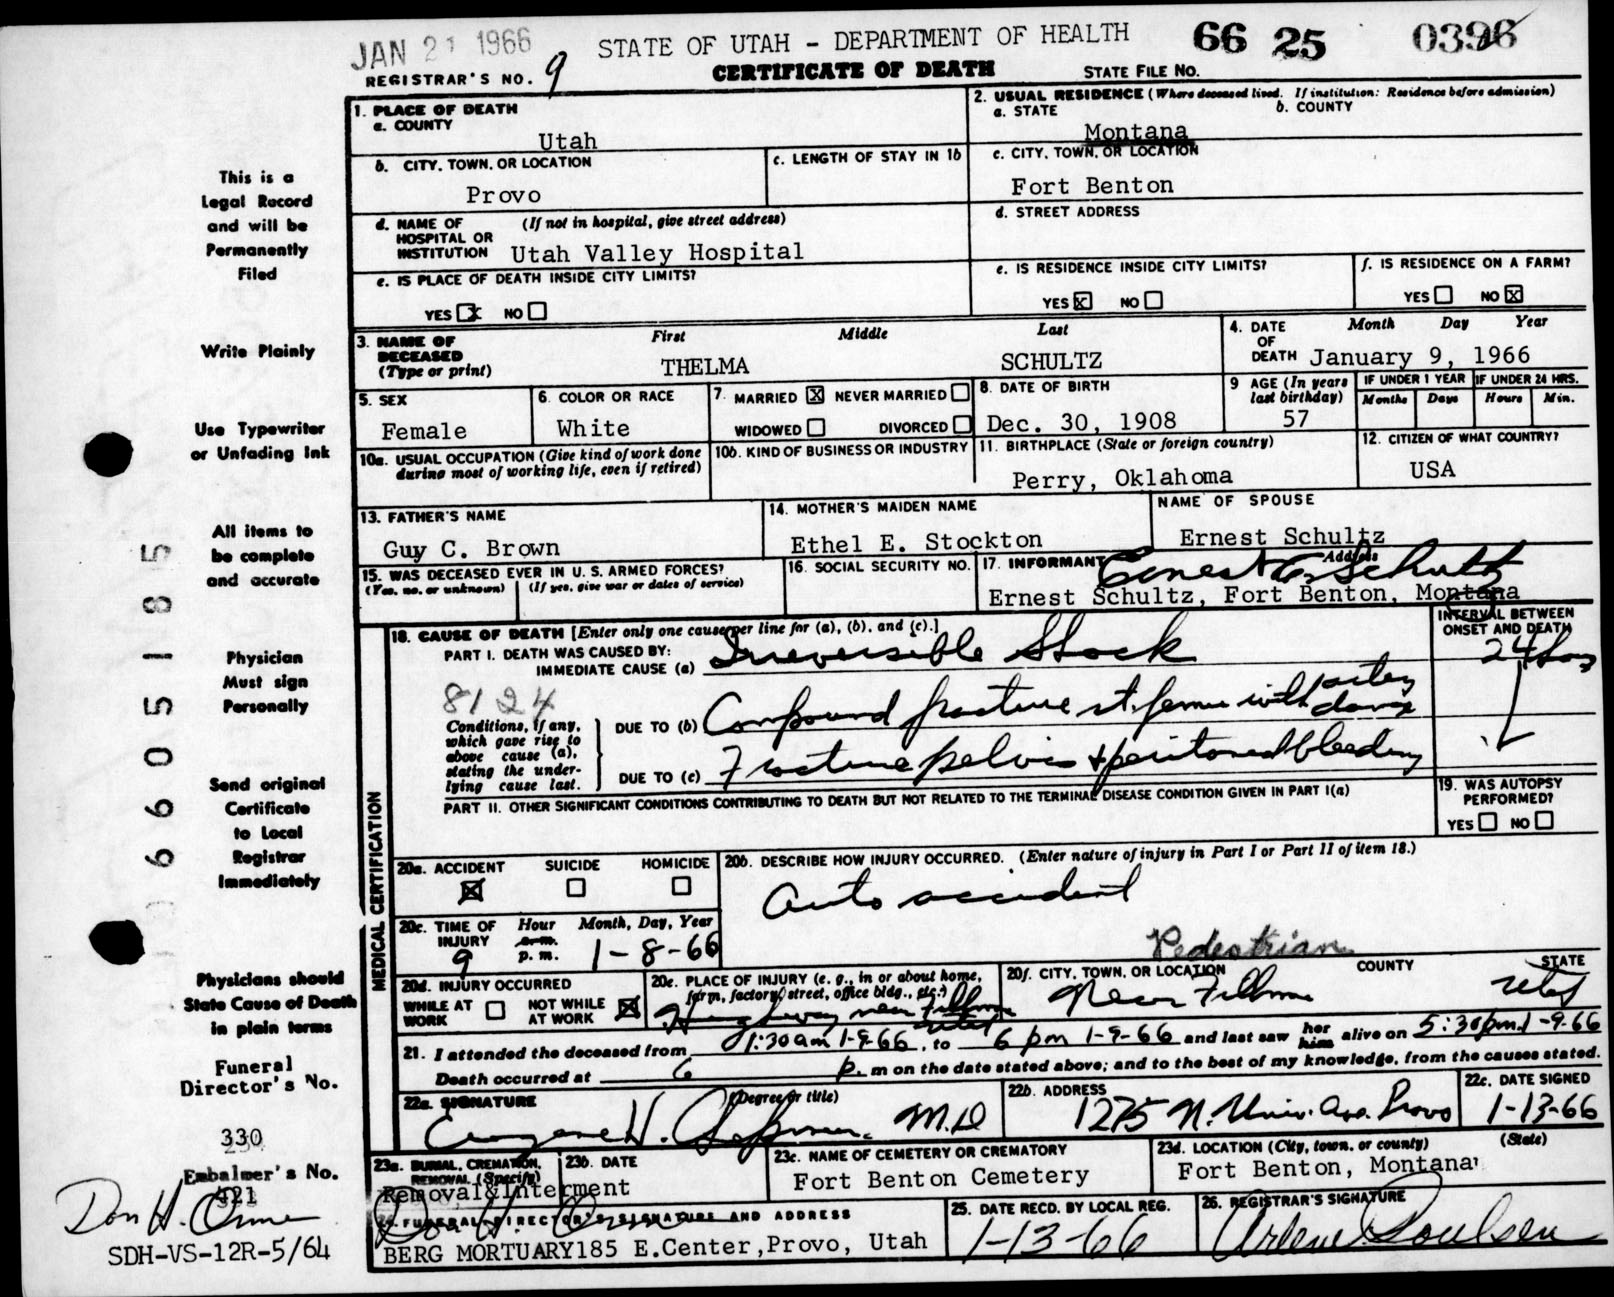 JAN 21 1966
STATE OF UTAH - DEPARTMENT OF HEALTH
66 25 0396
REGISTRAR'S NO. 9
CERTIFICATE OF DEATH
STATE FILE NO.
This is a
Legal Record
and will be
Permanently
Filed
Write Plainly
Use Typewriter
or Unfading Ink
All items to
be complete
and accurate
Physician
Must sign
Personally
Send original
Certificate
to Local
Registrar
Immediately
Physicians should
State Cause of Death
in plain terms
Funeral
Director's No.
330
Embalmer's No.
Don H.
SDH-VS-12R-5/64
6605185
1. PLACE OF DEATH
a. COUNTY
Utah
2. USUAL RESIDENCE (Where deceased lived. If institution: Residence before admission)
a. STATE b. COUNTY
Montana
b. CITY, TOWN, OR LOCATION
Provo
c. LENGTH OF STAY IN 1b
c. CITY, TOWN, OR LOCATION
Fort Benton
d. NAME OF (If not in hospital, give street address)
HOSPITAL OR
INSTITUTION Utah Valley Hospital
d. STREET ADDRESS
e. IS PLACE OF DEATH INSIDE CITY LIMITS?
YES X NO
e. IS RESIDENCE INSIDE CITY LIMITS?
YES X NO
f. IS RESIDENCE ON A FARM?
YES NO X
3. NAME OF First Middle Last
DECEASED
(Type or print) THELMA SCHULTZ
4. DATE Month Day Year
OF
DEATH January 9, 1966
5. SEX
Female
6. COLOR OR RACE
White
7. MARRIED X NEVER MARRIED
WIDOWED DIVORCED
8. DATE OF BIRTH
Dec. 30, 1908
9 AGE (In years
last birthday)
57
IF UNDER 1 YEAR IF UNDER 24 HRS.
Months Days Hours Min.
10a. USUAL OCCUPATION (Give kind of work done
during most of working life, even if retired)
10b. KIND OF BUSINESS OR INDUSTRY
11. BIRTHPLACE (State or foreign country)
Perry, Oklahoma
12. CITIZEN OF WHAT COUNTRY?
USA
13. FATHER'S NAME
Guy C. Brown
14. MOTHER'S MAIDEN NAME
Ethel E. Stockton
NAME OF SPOUSE
Ernest Schultz
15. WAS DECEASED EVER IN U. S. ARMED FORCES?
(Yes, no, or unknown) (If yes, give war or dates of service)
16. SOCIAL SECURITY NO.
17. INFORMANT Address
Ernest E. Schultz
Ernest Schultz, Fort Benton, Montana
18. CAUSE OF DEATH [Enter only one cause per line for (a), (b), and (c).]
INTERVAL BETWEEN
ONSET AND DEATH
PART I. DEATH WAS CAUSED BY:
IMMEDIATE CAUSE (a) Irreversible Shock 24 hrs
8124
Conditions, if any,
which gave rise to
above cause (a),
stating the under-
lying cause last.
DUE TO (b) Compound fracture rt. femur with artery
damage
DUE TO (c) Fracture pelvis + peritoneal bleeding
PART II. OTHER SIGNIFICANT CONDITIONS CONTRIBUTING TO DEATH BUT NOT RELATED TO THE TERMINAL DISEASE CONDITION GIVEN IN PART I(a)
19. WAS AUTOPSY
PERFORMED?
YES NO
MEDICAL CERTIFICATION
20a. ACCIDENT SUICIDE HOMICIDE
X
20b. DESCRIBE HOW INJURY OCCURRED. (Enter nature of injury in Part I or Part II of item 18.)
Auto accident
Pedestrian
20c. TIME OF Hour Month, Day, Year
INJURY a.m.
9 p. m. 1-8-66
20d. INJURY OCCURRED
WHILE AT NOT WHILE X
WORK AT WORK
20e. PLACE OF INJURY (e. g., in or about home,
farm, factory, street, office bldg., etc.)
Highway near Fillmore
Utah
20f. CITY, TOWN, OR LOCATION COUNTY STATE
Near Fillmore Utah
21. I attended the deceased from 1:30 am 1-9-66, to 6 pm 1-9-66 and last saw her him alive on 5:30 pm 1-9-66
Death occurred at 6 p. m on the date stated above; and to the best of my knowledge, from the causes stated.
22a. SIGNATURE (Degree or title)
Eugene H. M.D
22b. ADDRESS
1275 N. Univ. Ave. Provo
22c. DATE SIGNED
1-13-66
23a. BURIAL, CREMATION,
REMOVAL (Specify)
Removal&Interment
23b. DATE
23c. NAME OF CEMETERY OR CREMATORY
Fort Benton Cemetery
23d. LOCATION (City, town, or county) (State)
Fort Benton, Montana
FUNERAL DIRECTOR'S SIGNATURE AND ADDRESS
Don H.
BERG MORTUARY185 E.Center,Provo, Utah
25. DATE RECD. BY LOCAL REG.
1-13-66
26. REGISTRAR'S SIGNATURE
Arlene Poulsen